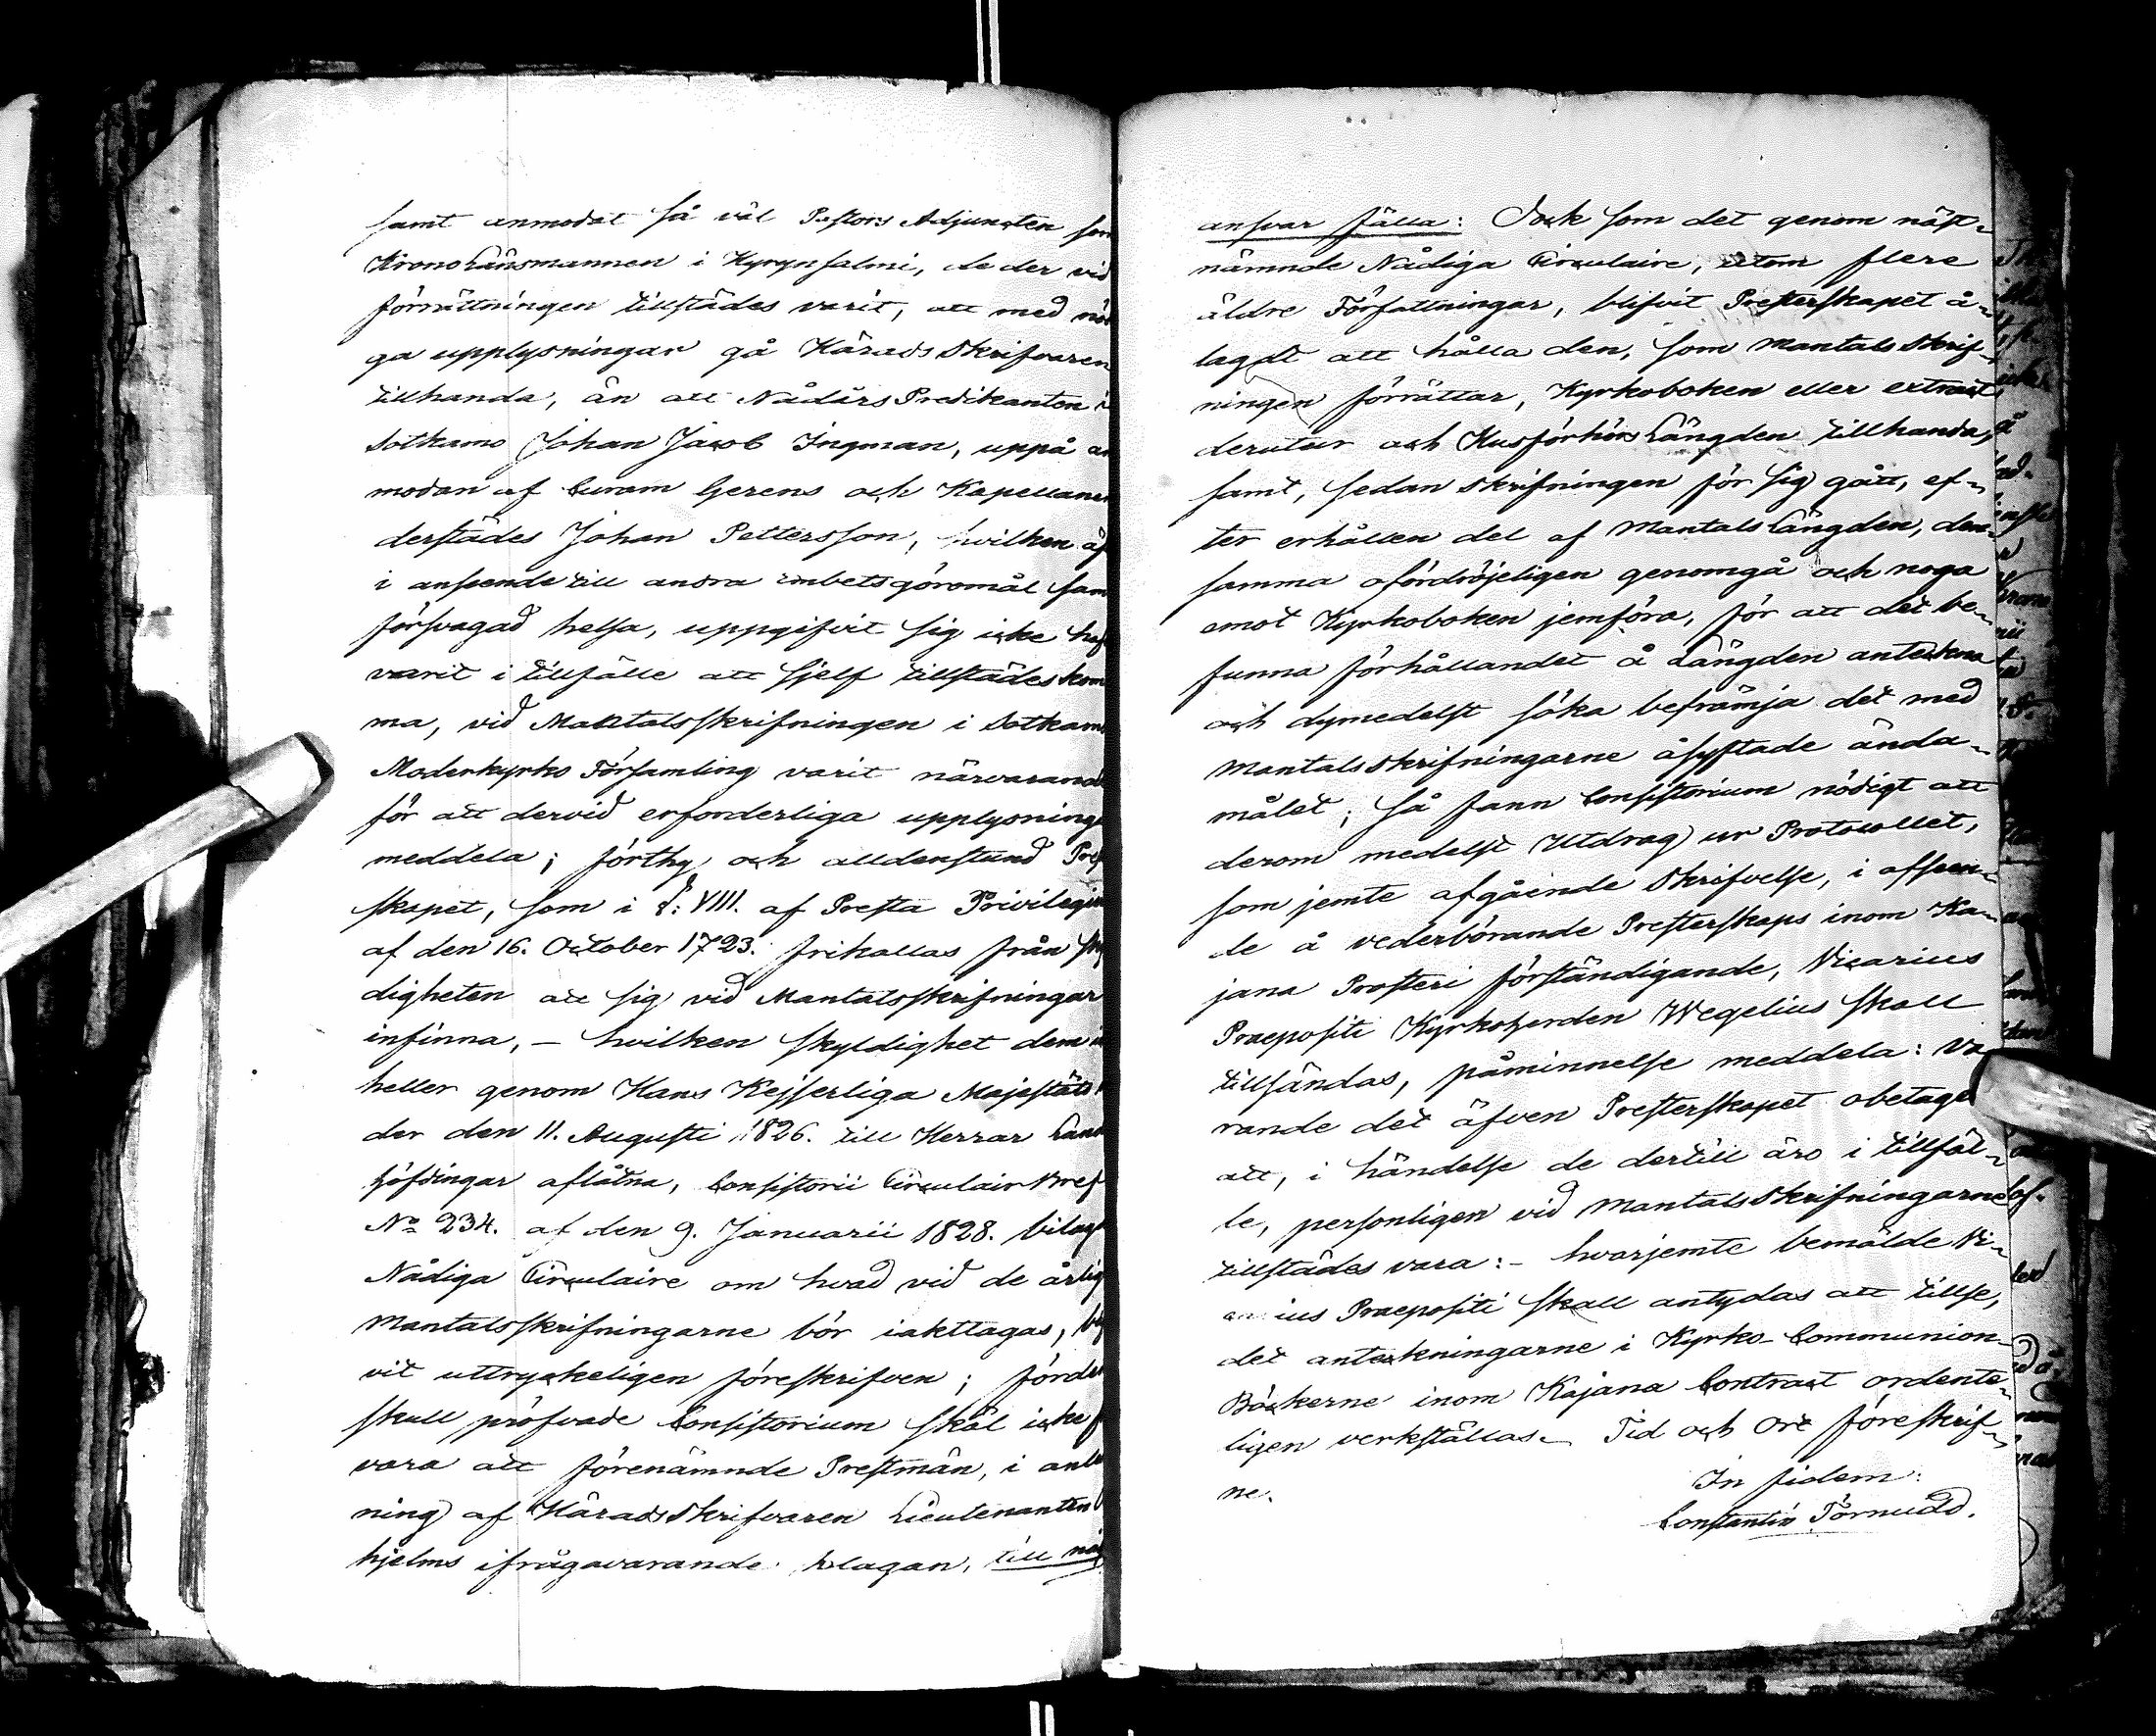 samt anmodat så väl Pastors Adjuncten som
Kronolänsmannen i Hyrynsalmi, de der vid
förrättningen tillstädes varit, att med nö
ga upplysningar gå Häradsskrifvaren
tillhanda, än att NådårsPredikanten i
Sotkamo Johan Jacob Ingman, uppå an
modan af Curam Gerens och Kapellanen
derstädes Johan Pettersson, hvilken äf
i anseende till andra embetsgöromål sam
försvagad helsa, uppgifvit sig icke haf
varit i tillfälle att sjelf tillstädes kom
ma, vid Mantalsskrifningen i Sotkamo
Moderkyrko Församling varit närvarande
för att dervid erforderliga upplysninga
meddela; förthy och alldenstund Pres
skapet, som i §: VIII. af Presta Privilegier
af den 16. October 1723. frikallas från sky
digheten att sig vid Mantalsskrifningar
infinna, – hvilken skyldighet dem i
heller genom Hans Kejserliga Majestäts
der den 11. Augusti 1826. till Herrar Land
höfdingar aflåtna, Consistorii Circulair Bref
No 234. af den 9. Januarii 1828. bilag
Nådiga Circulaire om hvad vid de årlig
Mantalsskrifningarne bör iakttagas, bli
vit uttryckeligen föreskrifven; förden
skull pröfvade Consistorium skäl icke
vara att förenämnde Prestmän, i anled
ning af Häradsskrifvaren Lieutenanten
hjelms ifrågavarande klagan, till nå
ansvar fälla: Dock som det genom näst-
nämnde Nådiga Circulaire, utom flere
äldre Författningar, blifvit Presterskapet å-
lagdt att hålla den, som Mantalsskrif-
ningen förrättar, Kyrkoboken eller extract
derutur och HusförhörsLängden tillhanda,
samt, sedan skrifningen för sig gått, ef-
ter erhållen del af MantalsLängden, den-
samma ofördröjeligen genomgå och noga
emot Kyrkoboken jemföra, för att det be-
funna förhållandet å Längden anteckna
och dymedelst söka befrämja det med
Mantalsskrifningarne åsyftade ända-
målet; så fann Consistorium nödigt att
derom medelst Utdrag ur Protocollet,
som jemte afgående skrifvelse, i afseen-
de å vederbörande Presterskaps inom Ka-
jana Prosteri förständigande, Vicarius
Praepositi Kyrkoherden Wegelius skall
tillsändas, påminnelse meddela: Va
rande det äfven Presterskapet obetaget
att, i händelse de dertill äro i tillfäl-
le, personligen vid Mantalsskrifningarne
tillstädes vara: – hvarjemte bemälde Vi-
carius Praepositi skall antydas att tillse,
det anteckningarne i Kyrko-Communion-
Böckerne inom Kajana Contract ordente-
ligen verkställas. Tid och Ort föreskrif-
ne.
In fidem:
Constantin Törnudd.